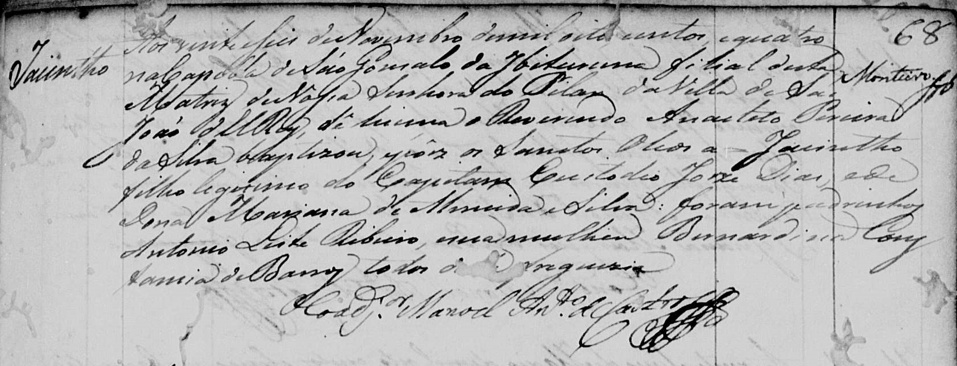 68
Jacintho
Aos vinte seis de Novembro de mil oito centos, e quatro
na Capela de São Gonsalo da Ibituruna filial desta
Matriz de Nossa Senhora do Pilar da Villa de São
João dEl Rey, de licença o Reverendo Anacleto Pereira
da Silva baptizou, e pôz os Sanctos Oleos a Jacintho
filho legitimo do Capitam Custodio Joze Dias, e de
Dona Mariana de Almeida e Silva: foram padrinhos
Antonio Leite Ribeiro, e sua mulher Bernardina Cons
tancia de Barros todos freguezia
Coadj.or Manoel An.to de Castro